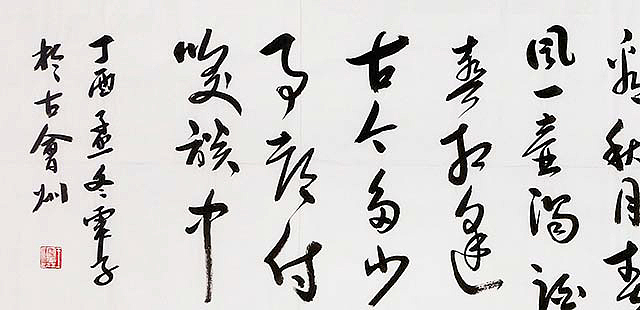 看秋月春
風一壺濁酒
喜相逢
古今多少
事都付
咲談中
丁酉孟冬子
於古會州